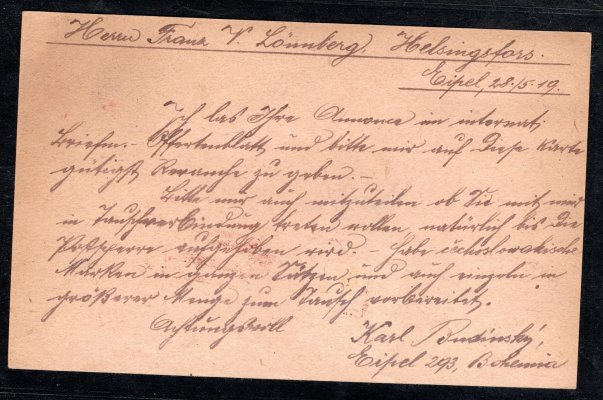 Herrn Franz V. Lönnberg, Helsingfors.
Eipel, 28./5.19.
Ich las Ihre Annonce im internat.
Briefm.- Offertenblatt und bitte mir auf diese Karte
gütigst Revanche zu geben.-
Bitte mir auch mitzuteilen ob Sie mit mir
in Tauschverbindung treten wollen, natürlich bis die
Postsperre aufgehoben wird. Habe čechoslowakische
Marken in ganzen Sätzen und auch einzeln in
größerer Menge zum Tausch vorbereitet.
Achtungsvoll
Karl Budínský,
Eipel 293, Bohemia